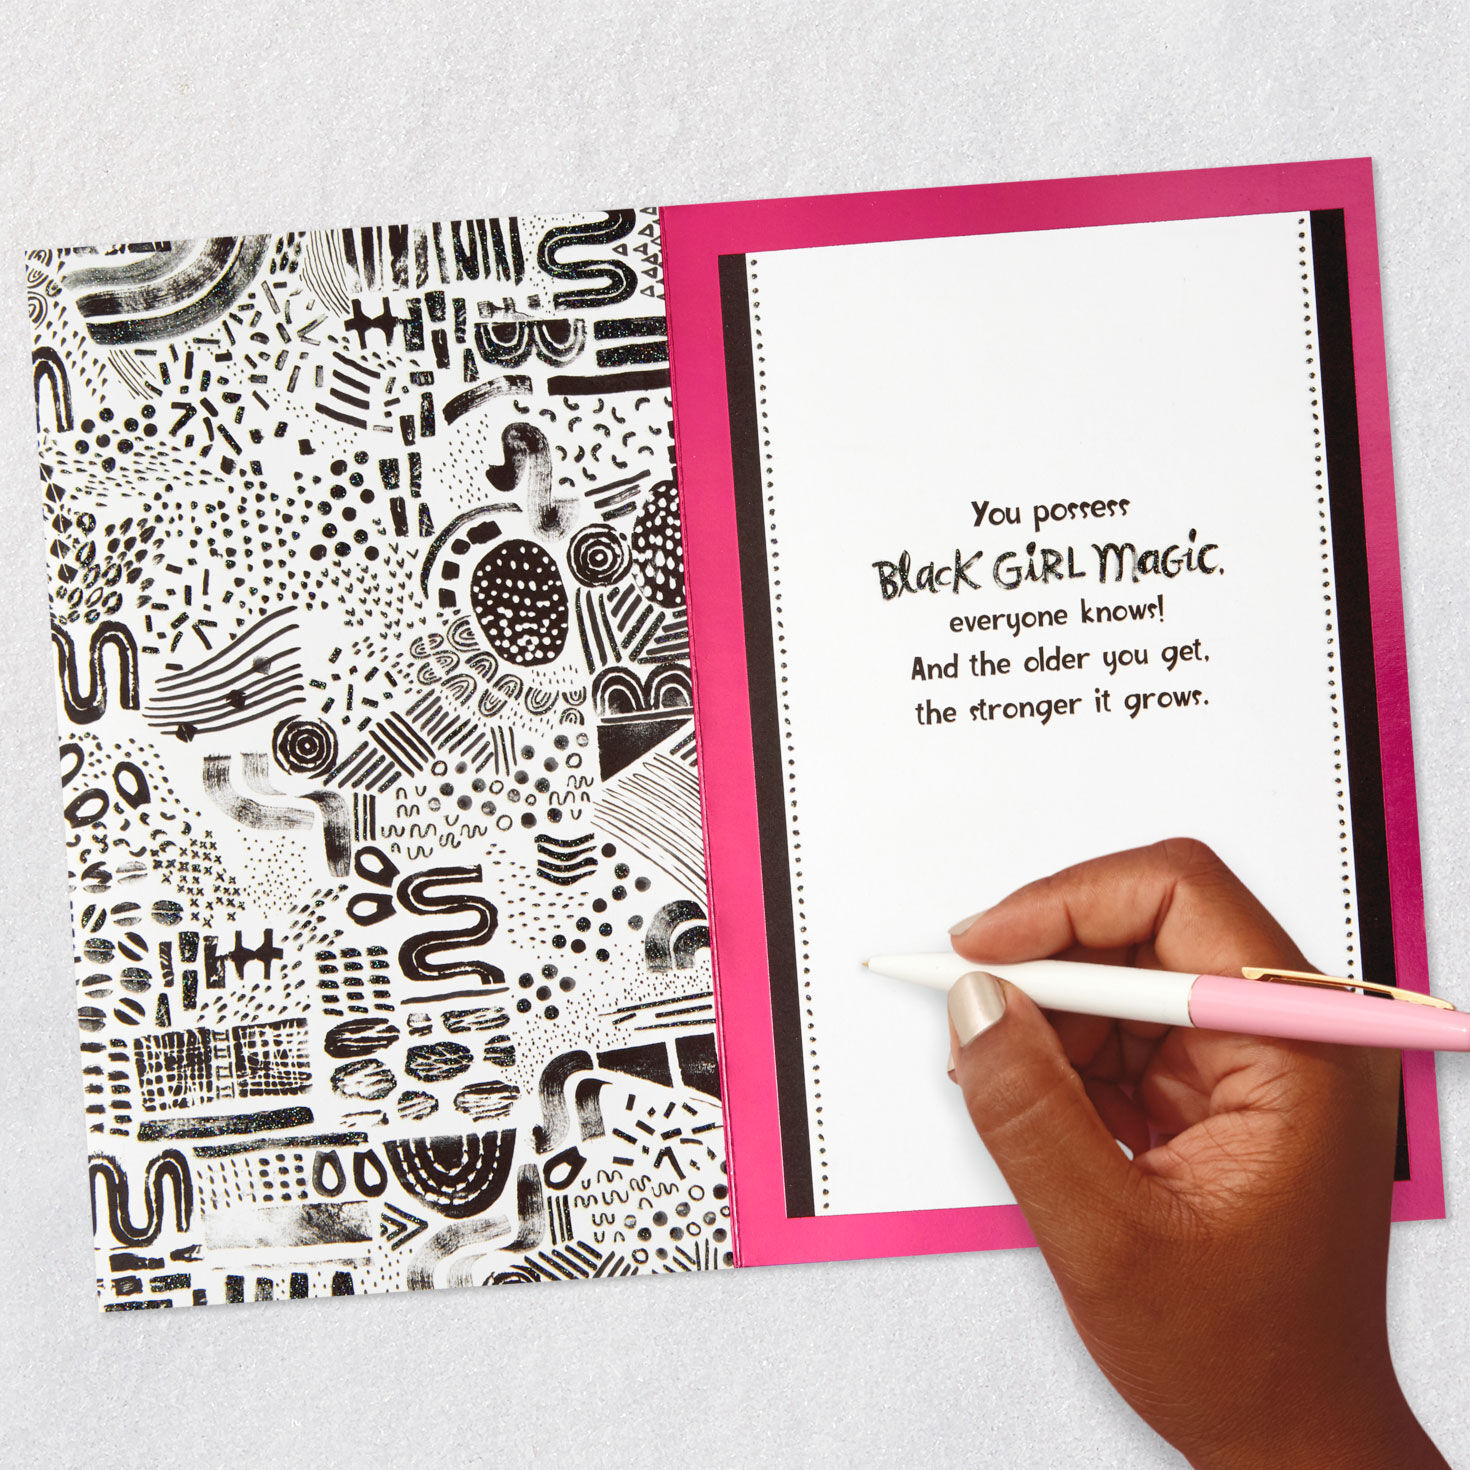 You possess
Black Girl Magic,
everyone knows!
And the older you get,
the stronger it grows.